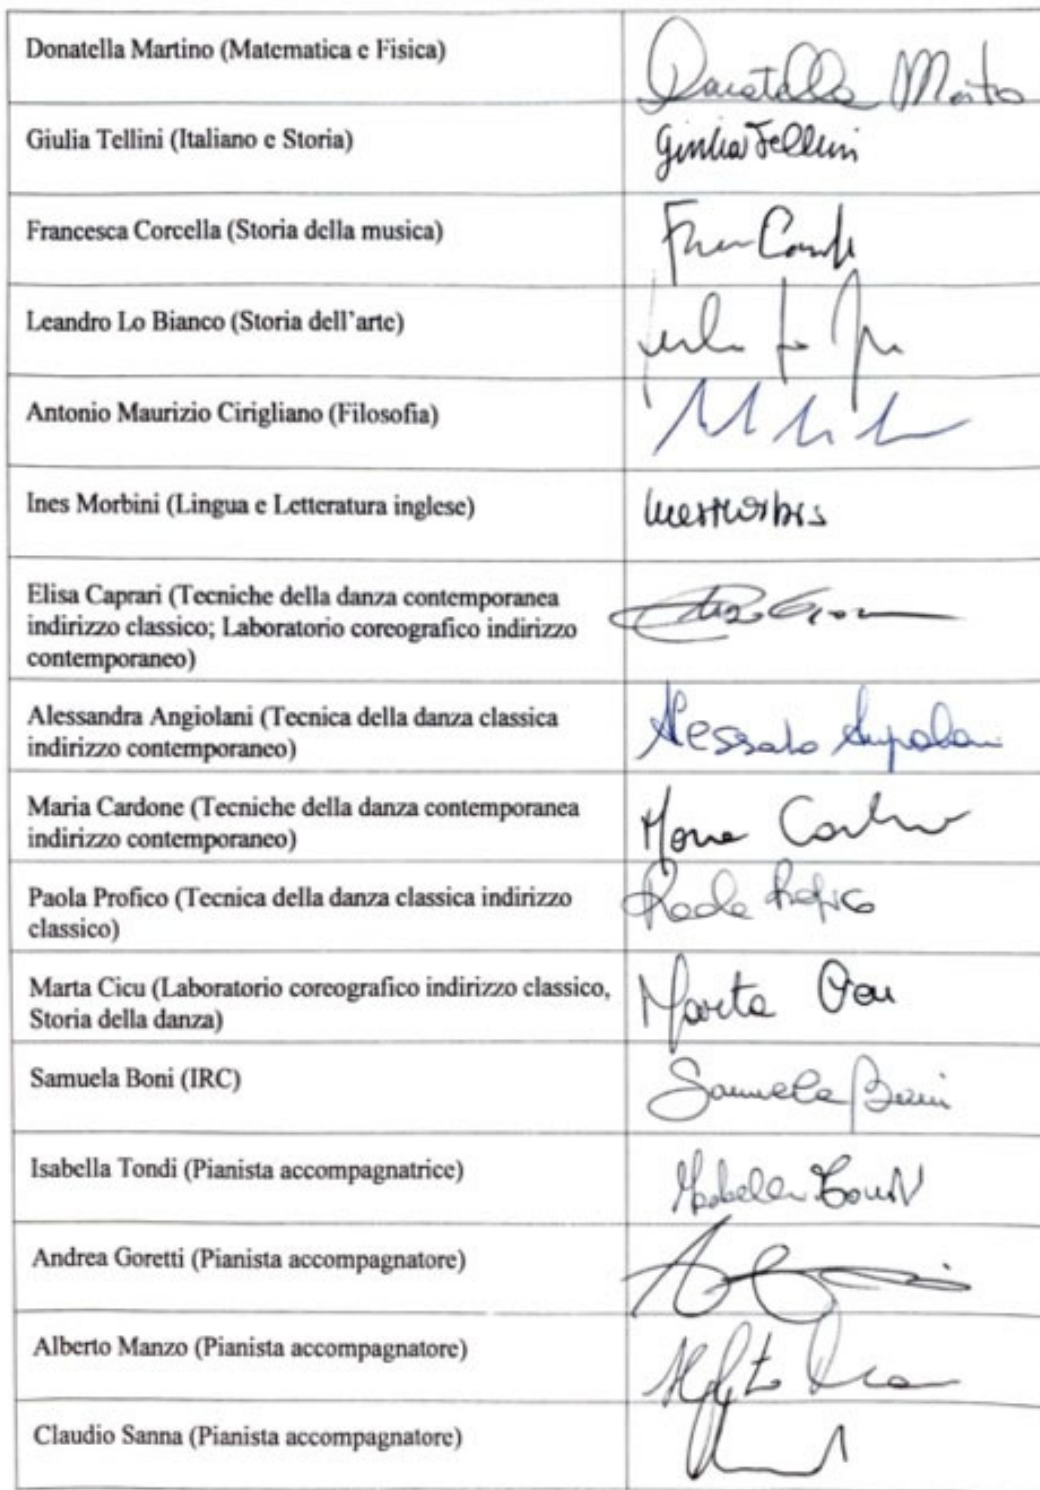 Donatella Martino (Matematica e Fisica)
Donatella Martino
Giulia Tellini (Italiano e Storia)
Giulia Tellini
Francesca Corcella (Storia della musica)
Leandro Lo Bianco (Storia dell'arte)
Antonio Maurizio Cirigliano (Filosofia)
Ines Morbini (Lingua e Letteratura inglese)
Elisa Caprari (Tecniche della danza contemporanea
indirizzo classico; Laboratorio coreografico indirizzo
contemporaneo)
Alessandra Angiolani (Tecnica della danza classica
indirizzo contemporaneo)
Maria Cardone (Tecniche della danza contemporanea
indirizzo contemporaneo)
Paola Profico (Tecnica della danza classica indirizzo
classico)
Paola Profico
Marta Cicu (Laboratorio coreografico indirizzo classico,
Storia della danza)
Marta Cicu
Samuela Boni (IRC)
Samuela Boni
Isabella Tondi (Pianista accompagnatrice)
Isabella Tondi
Andrea Goretti (Pianista accompagnatore)
Alberto Manzo (Pianista accompagnatore)
Claudio Sanna (Pianista accompagnatore)